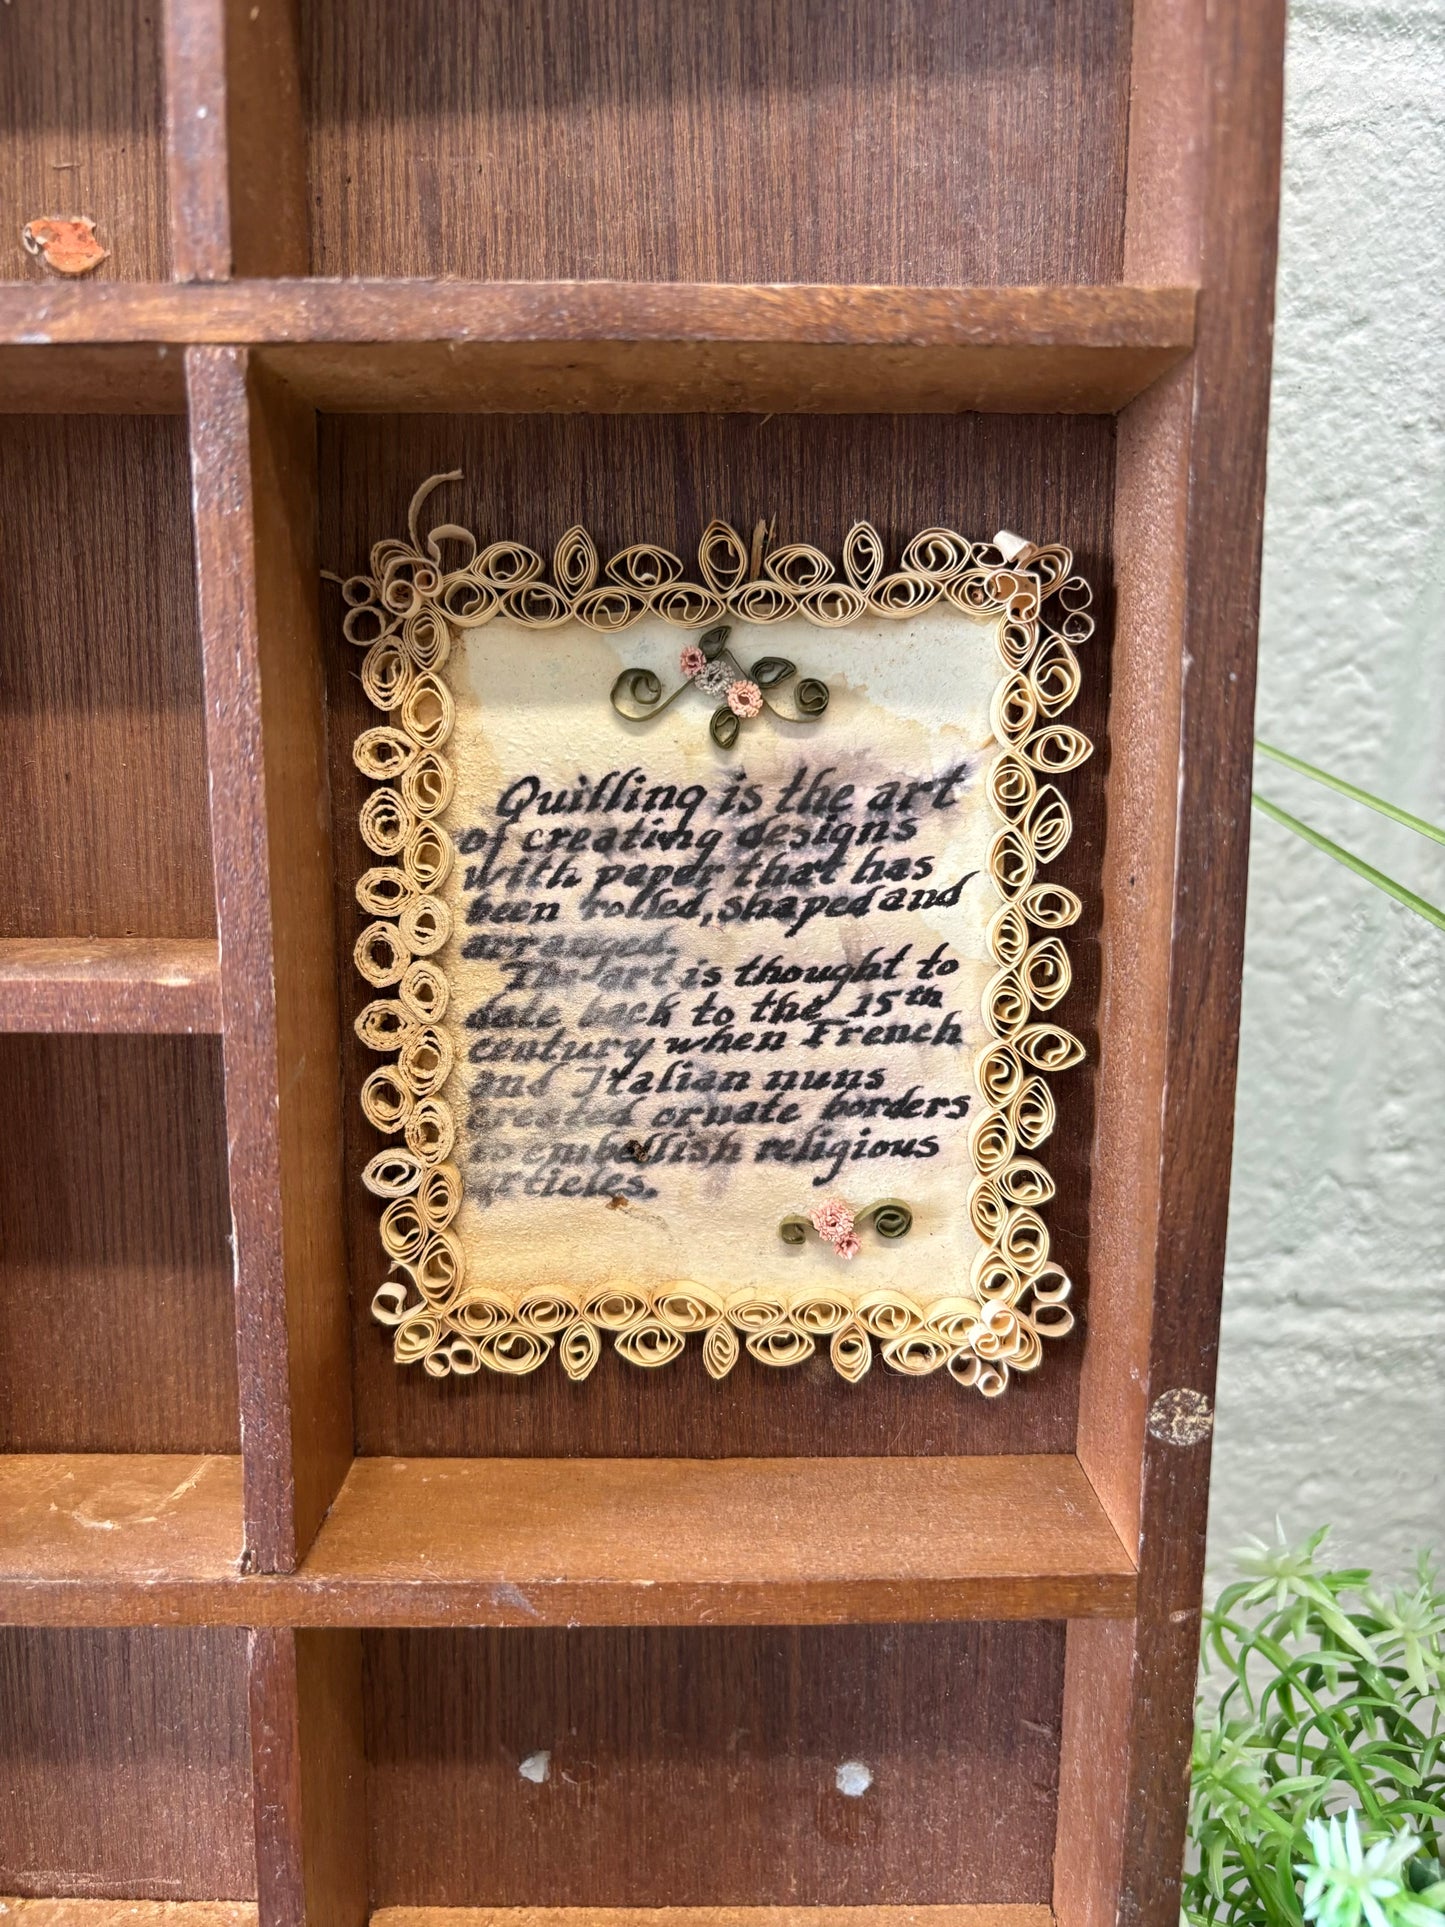 Quilling is the art
of creating designs
with paper that has
been rolled, shaped and
arranged.
The art is thought to
date back to the 15th
century when French
and Italian nuns
created ornate borders
to embellish religious
articles.